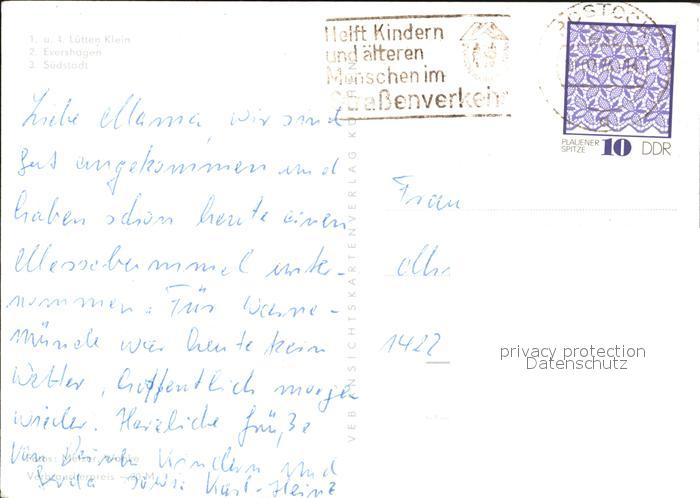 1. u. 4. Lütten Klein
2. Evershagen
3. Südstadt
Helft Kindern
und älteren
Menschen im
Straßenverkehr
ROSTOCK
PLAUENER
SPITZE 10 DDR
Liebe Mama, wir sind
gut angekommen und
haben schon heute einen
Messebummel unter-
nommen. Für Warne-
münde war heute kein
Wetter, hoffentlich morgen
wieder. Herzliche Grüße
von Deinen Kindern und
sowie Karl-Heinz
Verbraucherpreis
VEB ANSICHTSKARTENVERLAG
Frau
1422
privacy protection
Datenschutz